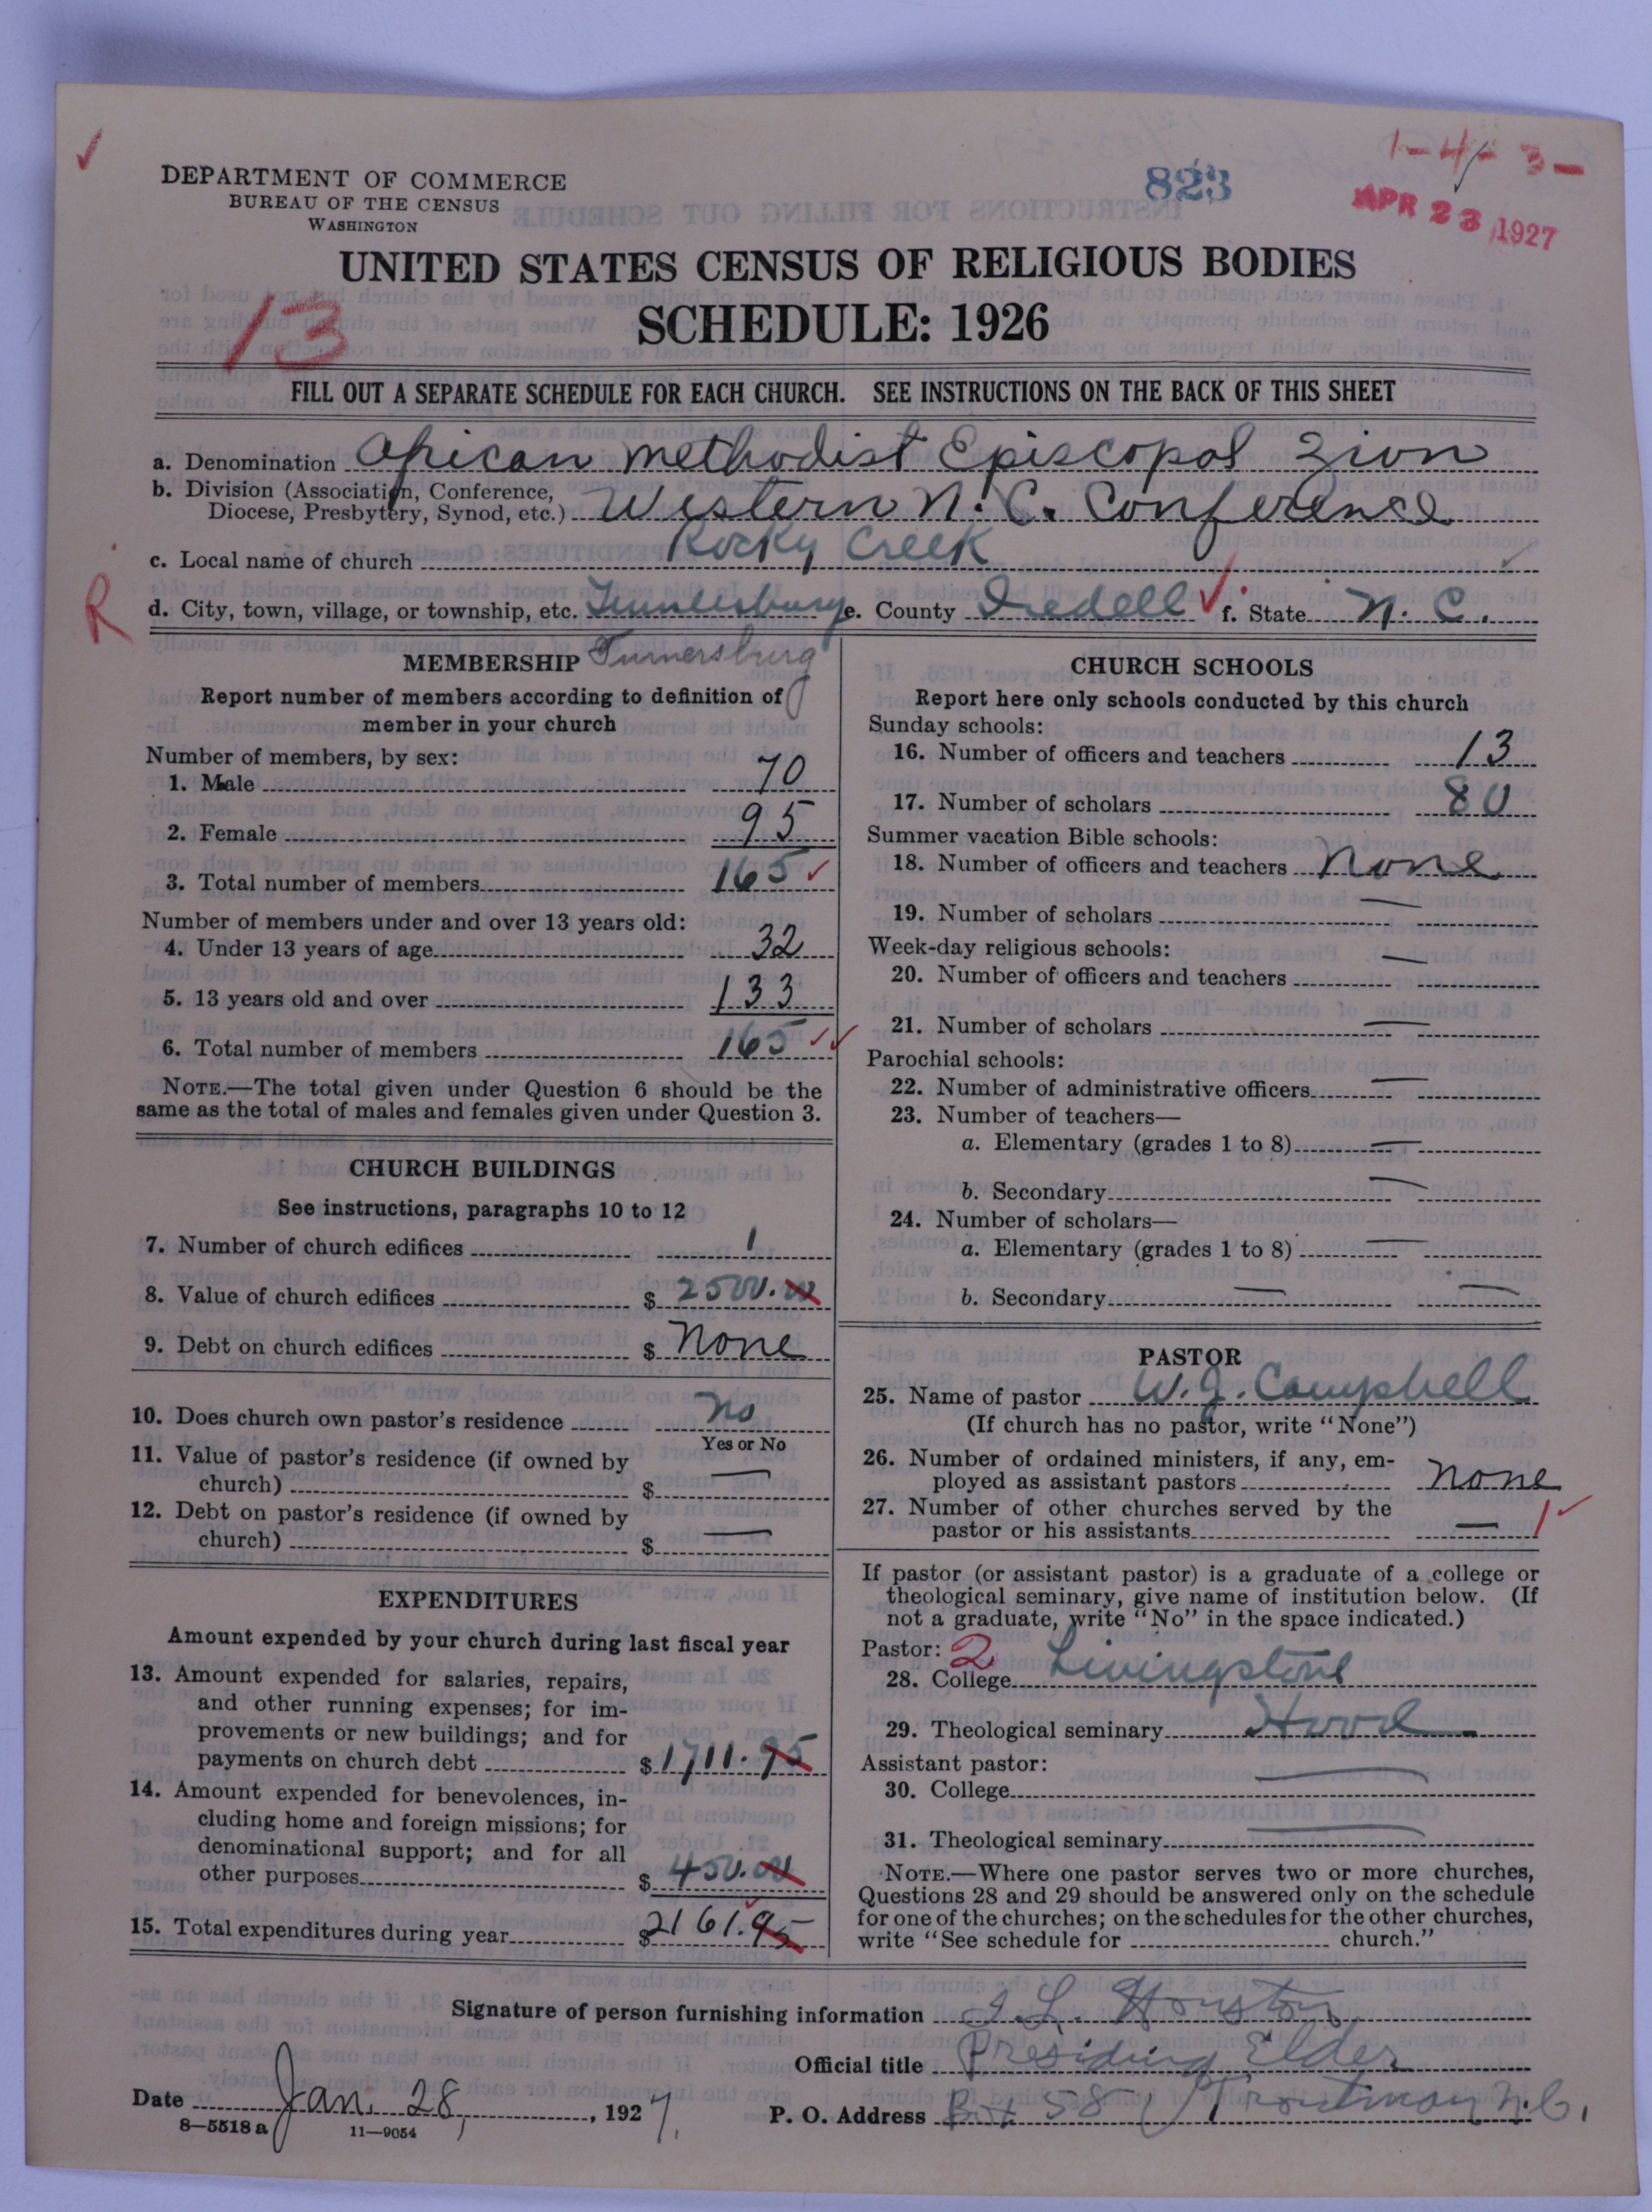 1-4-3-
823
APR 23 1927
DEPARTMENT OF COMMERCE
BUREAU OF THE CENSUS
WASHINGTON
UNITED STATES CENSUS OF RELIGIOUS BODIES
13
SCHEDULE: 1926
FILL OUT A SEPARATE SCHEDULE FOR EACH CHURCH. SEE INSTRUCTIONS ON THE BACK OF THIS SHEET
a. Denomination African Methodist Episcopal Zion
b. Division (Association, Conference,
Diocese, Presbytery, Synod, etc.) Western N. C. Conference
c. Local name of church Rocky Creek
R
d. City, town, village, or township, etc. e. County Iredell f. State N. C.
MEMBERSHIP Turnersburg
Report number of members according to definition of
member in your church
Number of members, by sex:
1. Male 70
2. Female 95
3. Total number of members 165
Number of members under and over 13 years old:
4. Under 13 years of age 32
5. 13 years old and over 133
6. Total number of members 165
NOTE.—The total given under Question 6 should be the
same as the total of males and females given under Question 3.
CHURCH BUILDINGS
See instructions, paragraphs 10 to 12
7. Number of church edifices 1
8. Value of church edifices $ 2500.00
9. Debt on church edifices $ None
10. Does church own pastor's residence No
Yes or No
11. Value of pastor's residence (if owned by
church) $ —
12. Debt on pastor's residence (if owned by
church) $ —
EXPENDITURES
Amount expended by your church during last fiscal year
13. Amount expended for salaries, repairs,
and other running expenses; for im-
provements or new buildings; and for
payments on church debt $ 1711.95
14. Amount expended for benevolences, in-
cluding home and foreign missions; for
denominational support; and for all
other purposes $ 450.00
15. Total expenditures during year $ 2161.95
CHURCH SCHOOLS
Report here only schools conducted by this church
Sunday schools:
16. Number of officers and teachers 13
17. Number of scholars 80
Summer vacation Bible schools:
18. Number of officers and teachers None
19. Number of scholars —
Week-day religious schools:
20. Number of officers and teachers —
21. Number of scholars —
Parochial schools:
22. Number of administrative officers —
23. Number of teachers—
a. Elementary (grades 1 to 8) —
b. Secondary —
24. Number of scholars—
a. Elementary (grades 1 to 8) —
b. Secondary — —
PASTOR
25. Name of pastor W. J. Campbell
(If church has no pastor, write "None")
26. Number of ordained ministers, if any, em-
ployed as assistant pastors None
27. Number of other churches served by the
pastor or his assistants — 1
If pastor (or assistant pastor) is a graduate of a college or
theological seminary, give name of institution below. (If
not a graduate, write "No" in the space indicated.)
Pastor: 2
28. College Livingstone
29. Theological seminary Hood
Assistant pastor:
30. College —
31. Theological seminary —
NOTE.—Where one pastor serves two or more churches,
Questions 28 and 29 should be answered only on the schedule
for one of the churches; on the schedules for the other churches,
write "See schedule for church."
Signature of person furnishing information I. L. Houston
Official title Presiding Elder
Date Jan. 28, 1927.
P. O. Address Box 58 Troutman N. C.
8—5518 a 11—9054